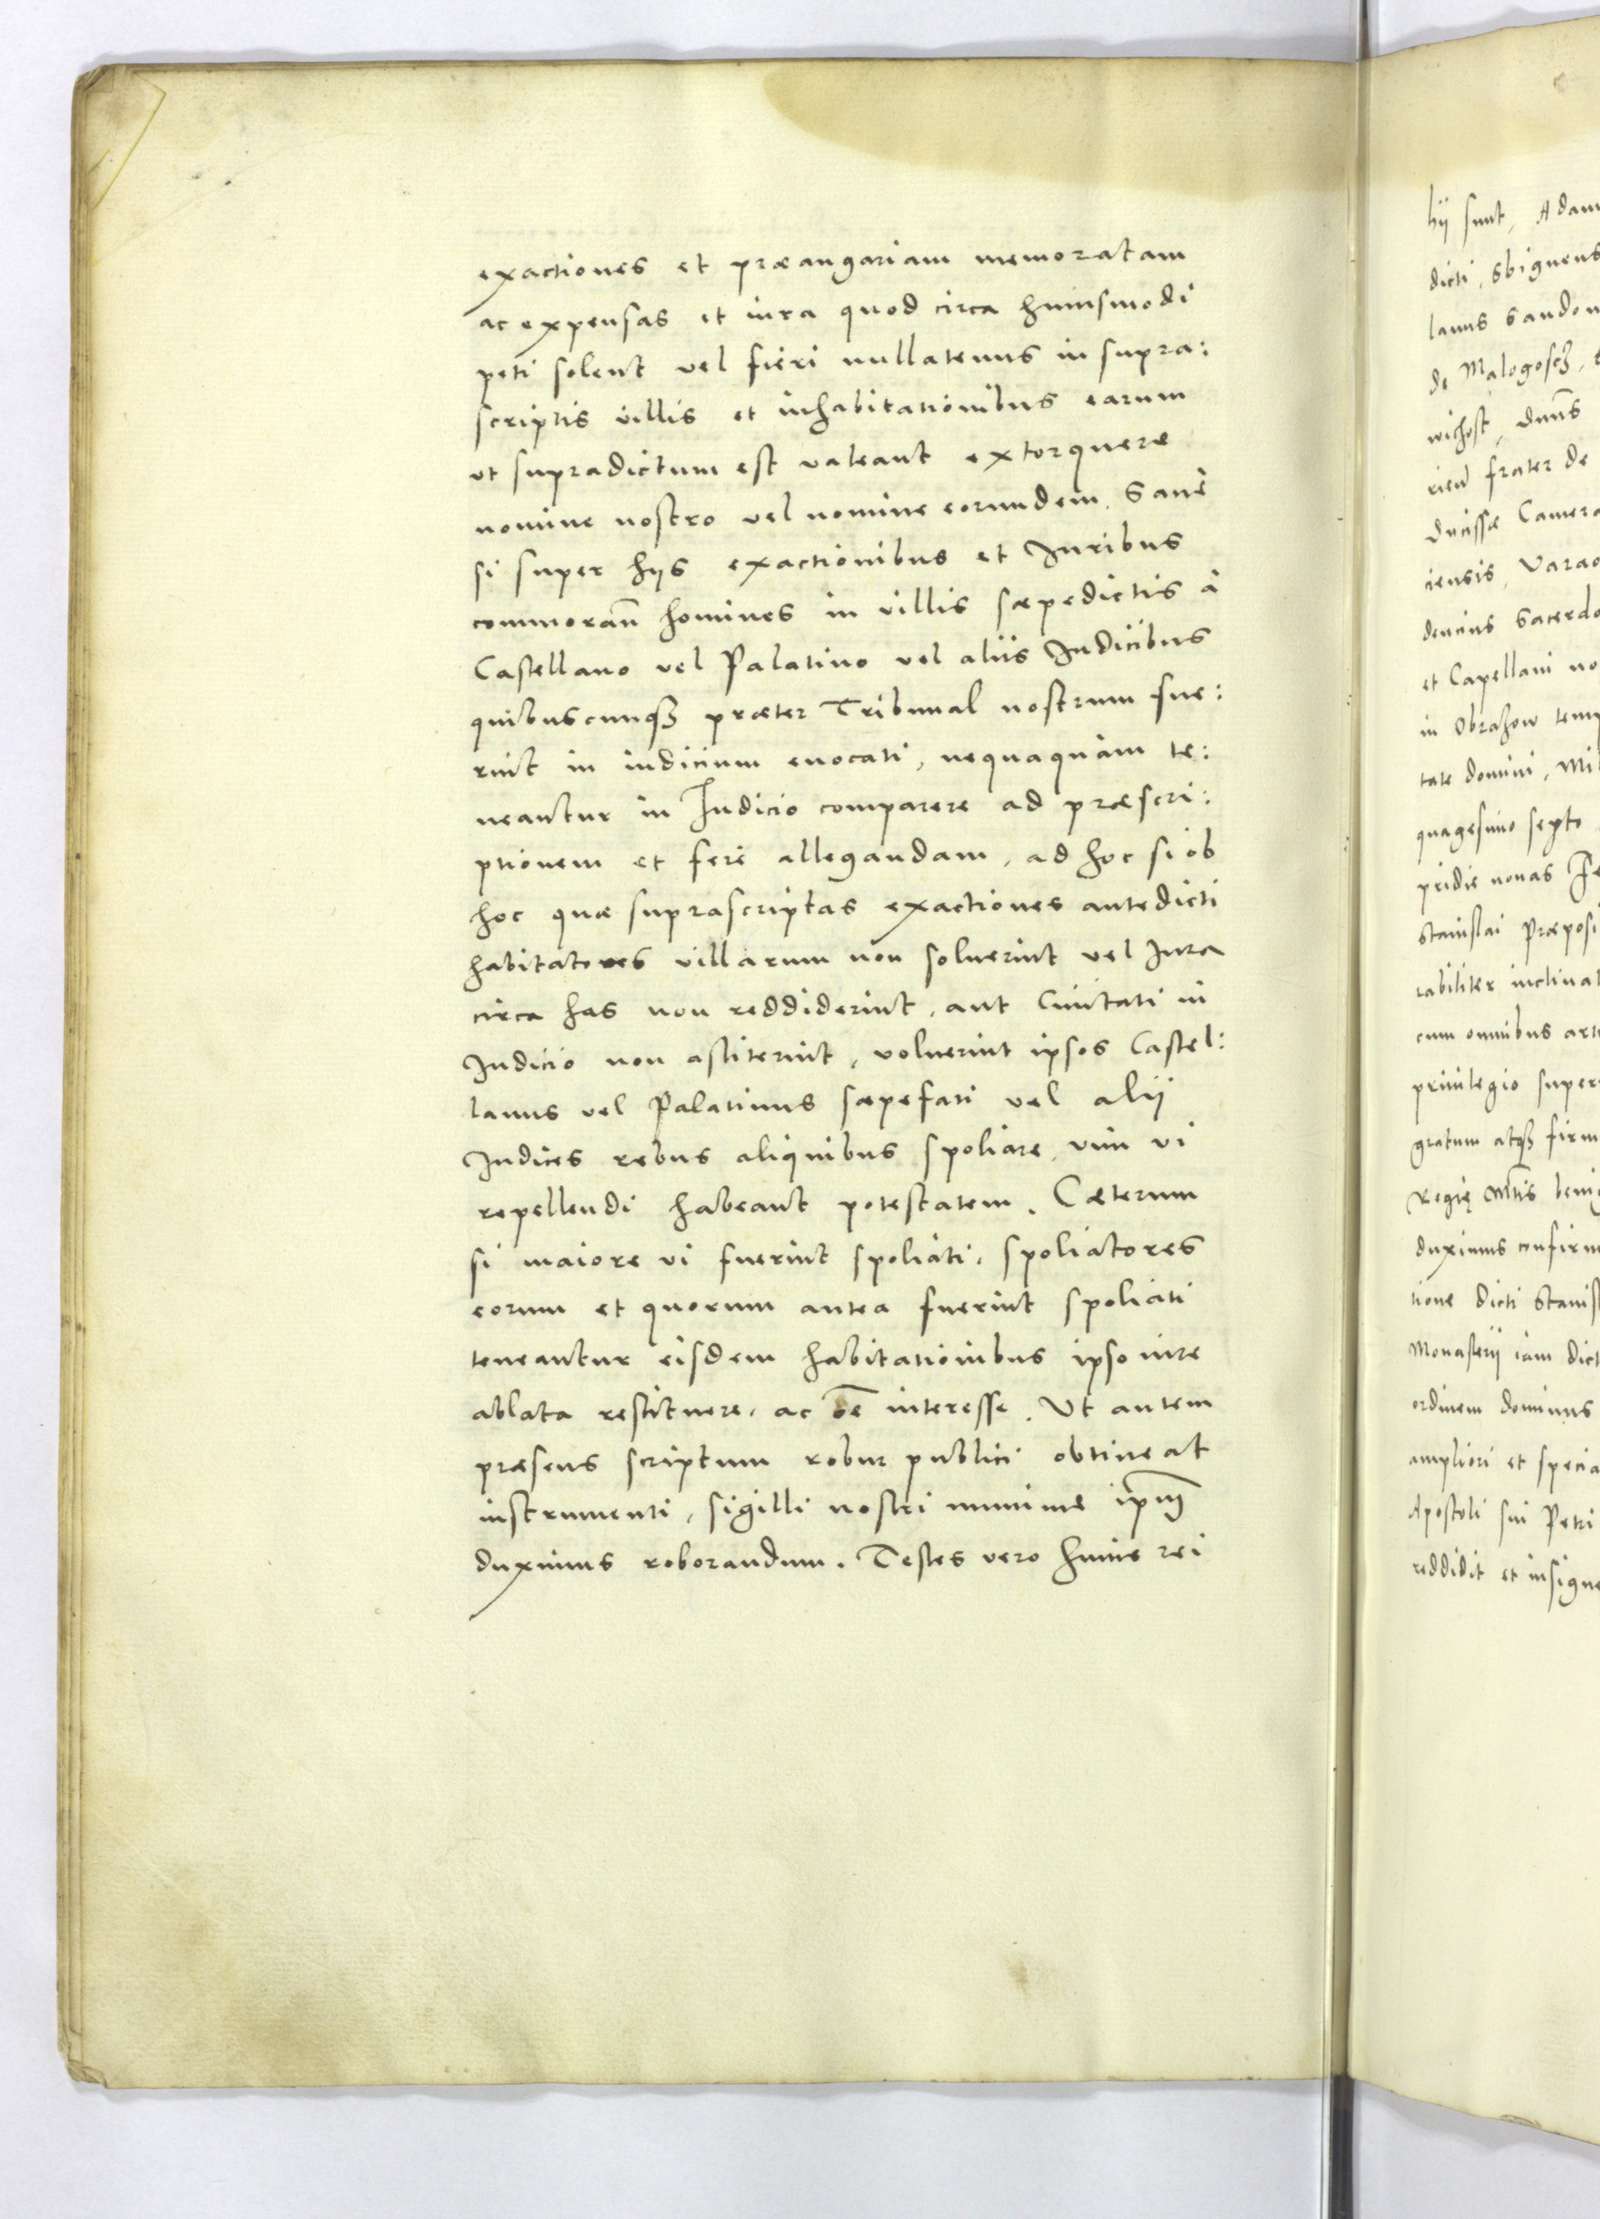 exactiones et præangariam memoratam
ac expensas et iura quod circa huiusmodi
peti solent vel fieri nullatenus in supra:
scriptis villis et inhabitationibus earum
vt supradictum est valeant extorquere
nomine nostro vel nomine eorundem. Sane
si super hijs exactionibus et Juribus
commoran̄ homines in villis sæpedictis à
Castellano vel Palatino vel aliis Judicibus
quibuscunqȝ præter Tribunal nostrum fue:
rint in iudicium euocati, nequaquàm te:
neantur in Iudicio comparere ad præscri:
ptionem et fere allegandam, ad hoc si ob
hoc quæ suprascriptas exactiones antedicti
habitatores villarum non soluerint vel Jura
circa has non reddiderint, aut Ciuitati in
Judicio non astiterint, voluerint ipsos Castel:
lanus vel Palatinus sæpefati vel alij
Judices rebus aliquibus spoliare, vim vi
repellendi habeant potestatem. Cæterum
si maiore vi fuerint spoliati, spoliatores
eorum et quorum antea fuerint spoliati
teneantur eisdem habitationibus ipso iure
ablata restituere, ac ōē interesse. Vt autem
præsens scriptum robur publici obtineat
instrumenti, sigilli nostri munime ip̄m
duximus roborandum. Testes vero huius rei
hij sunt, Adam
dicti, Sbigneus
lanus Sandom
de Malogosch,
wichost, dnūs
frater de
ducissæ Camera
ciensis, Varao
dencius Sacerdo
et Capellani no
in Obrazow temp
tate domini, Mil
quagesimo septo
pridie nonas Fe
Stanislai Præposi
rabiliter inclinat
cum omnibus arti
priuilegio super
gratum atqȝ firm
Regię Mt̄is benig
duximus confirm
tione dicti Stanis
Monasterij iam dict
ordinem dominus
ampliori et specia
Apostoli sui Petri
reddidit et insigne